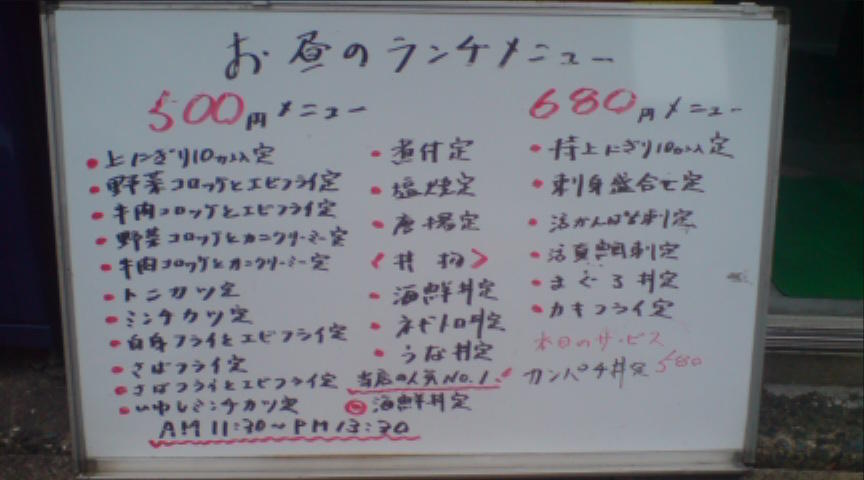 お昼のランチメニュー
500円メニュー
・上にぎり10カン入定
・野菜コロッケとエビフライ定
・牛肉コロッケとエビフライ定
・野菜コロッケとカニクリーミー定
・牛肉コロッケとカニクリーミー定
・トンカツ定
・ミンチカツ定
・白身フライとエビフライ定
・さばフライ定
・さばフライとエビフライ定
・いわしミンチカツ定
AM 11:30~PM 13:30
・煮付定
・塩焼定
・唐揚定
<丼物>
・海鮮丼定
・ネギトロ丼定
・うな丼定
当店の人気NO.1!
◎海鮮丼定
680円メニュー
・特上にぎり10カン入定
・刺身盛合せ定
・活かんぱち刺定
・活真鯛刺定
・まぐろ丼定
・カキフライ定
本日のサービス
カンパチ丼定 580